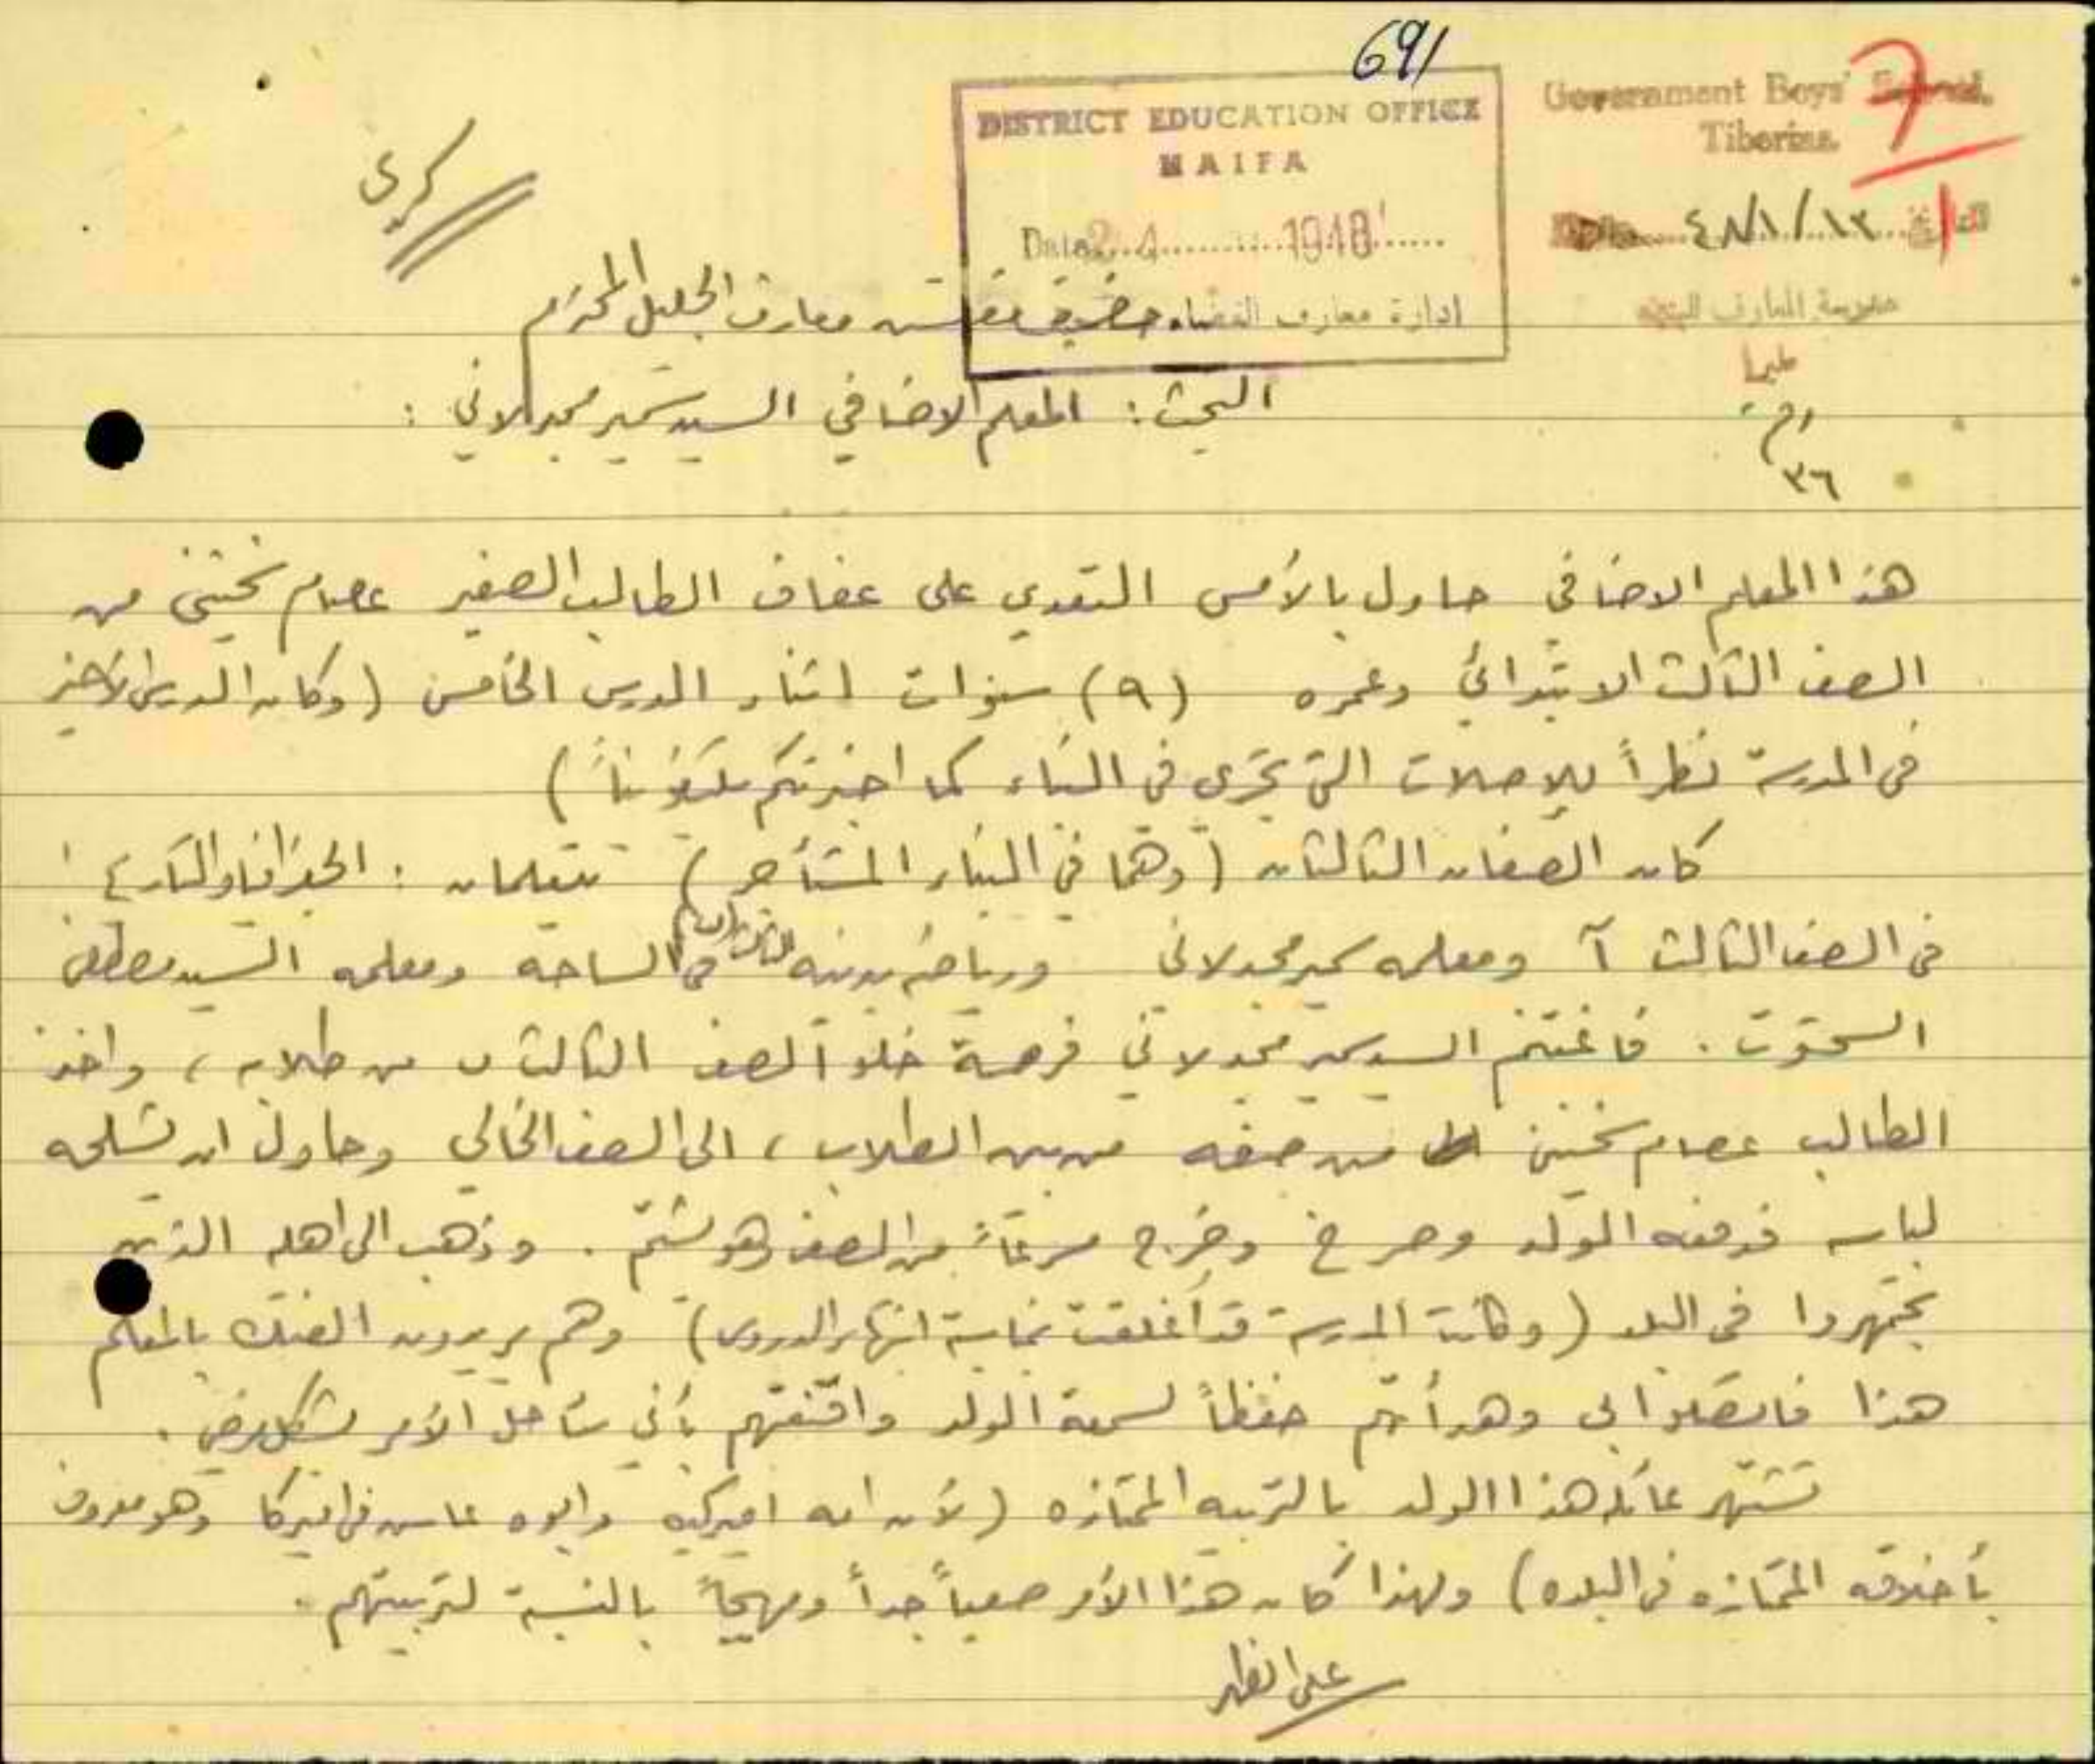 691
Government Boys' School,
Tiberias.
7
DISTRICT EDUCATION OFFICE
HAIFA
Date 2 4 1948
ادارة معارف القضاء
التاريخ ١٣/١/٤٨
طبريا
رقم
٣٦
سري
حضرة مفتش معارف الجليل المحترم
البحث : المعلم الاضافي السيد سمير مجدلاني :
هذا المعلم الاضافي حاول بالأمس التعدي على عفاف الطالب الصغير عصام نخنيني من
الصف الثالث الابتدائي وعمره (٩) سنوات اثناء الدرس الخامس (وكان الدرس الأخير
في المدرسة نظراً للإصلاحات التي تجري في البناء كما اخبرتكم تلفونياً)
كان الصفان الثالثان (وهما في البناء المستأجر) يتعلمان : الجغرافيا والتاريخ
في الصف الثالث آ ومعلمه سمير مجدلاني ورياضه بدنيه في الساحه ومعلمه السيد مصطفى
السحتوت . فاغتنم السيد سمير مجدلاني فرصة خلو الصف الثالث ب من طلابه ، واخذ
الطالب عصام نخنيني من صفه من بين الطلاب ، الى الصف الخالي وحاول ان يشلحه
لباسه فدفعه الولد وصرخ وخرج مسرعاً من الصف وهو يشتم . وذهب الى اهله الذين
تجمهروا في البلد (وكانت المدرسة قد أغلقت بمناسبة انتهاء الدروس) وهم يريدون الفتك بالمعلم
هذا فاتصلوا بي وهدأتهم حفظاً لسمعة الولد واقنعتهم بأني سأحل الأمر بشكل مرضي .
تشتهر عائلة هذا الولد بالتربيه الممتازه (لأن امه اميركيه وابوه عاش في اميركا وهو معروف
بأخلاقه الممتازه في البلده) ولهذا كان هذا الأمر صعباً جداً ومهيجاً بالنسبة لتربيتهم .